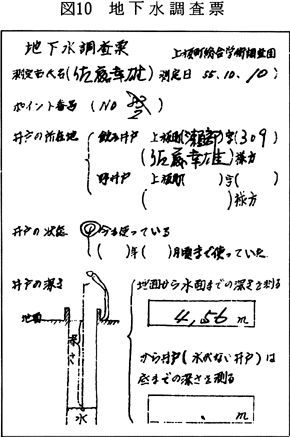 図10 地下水調査票
地下水調査票 上板町総合学術調査団
測定者氏名(佐藤幸雄) 測定日 55.10.10)
ポイント番号 (NO )
井戸の所在地 飲み井戸 上板町 字(309)
(佐藤幸雄)様方
野井戸 上板町( )字( )
( )様方
井戸の状態 今も使っている
( )年( )月頃まで使っていた
井戸の深さ 地面から水面までの深さを測る
地面
深さ
4,56 m
から井戸(水がない井戸)は
底までの深さを測る
. m
水